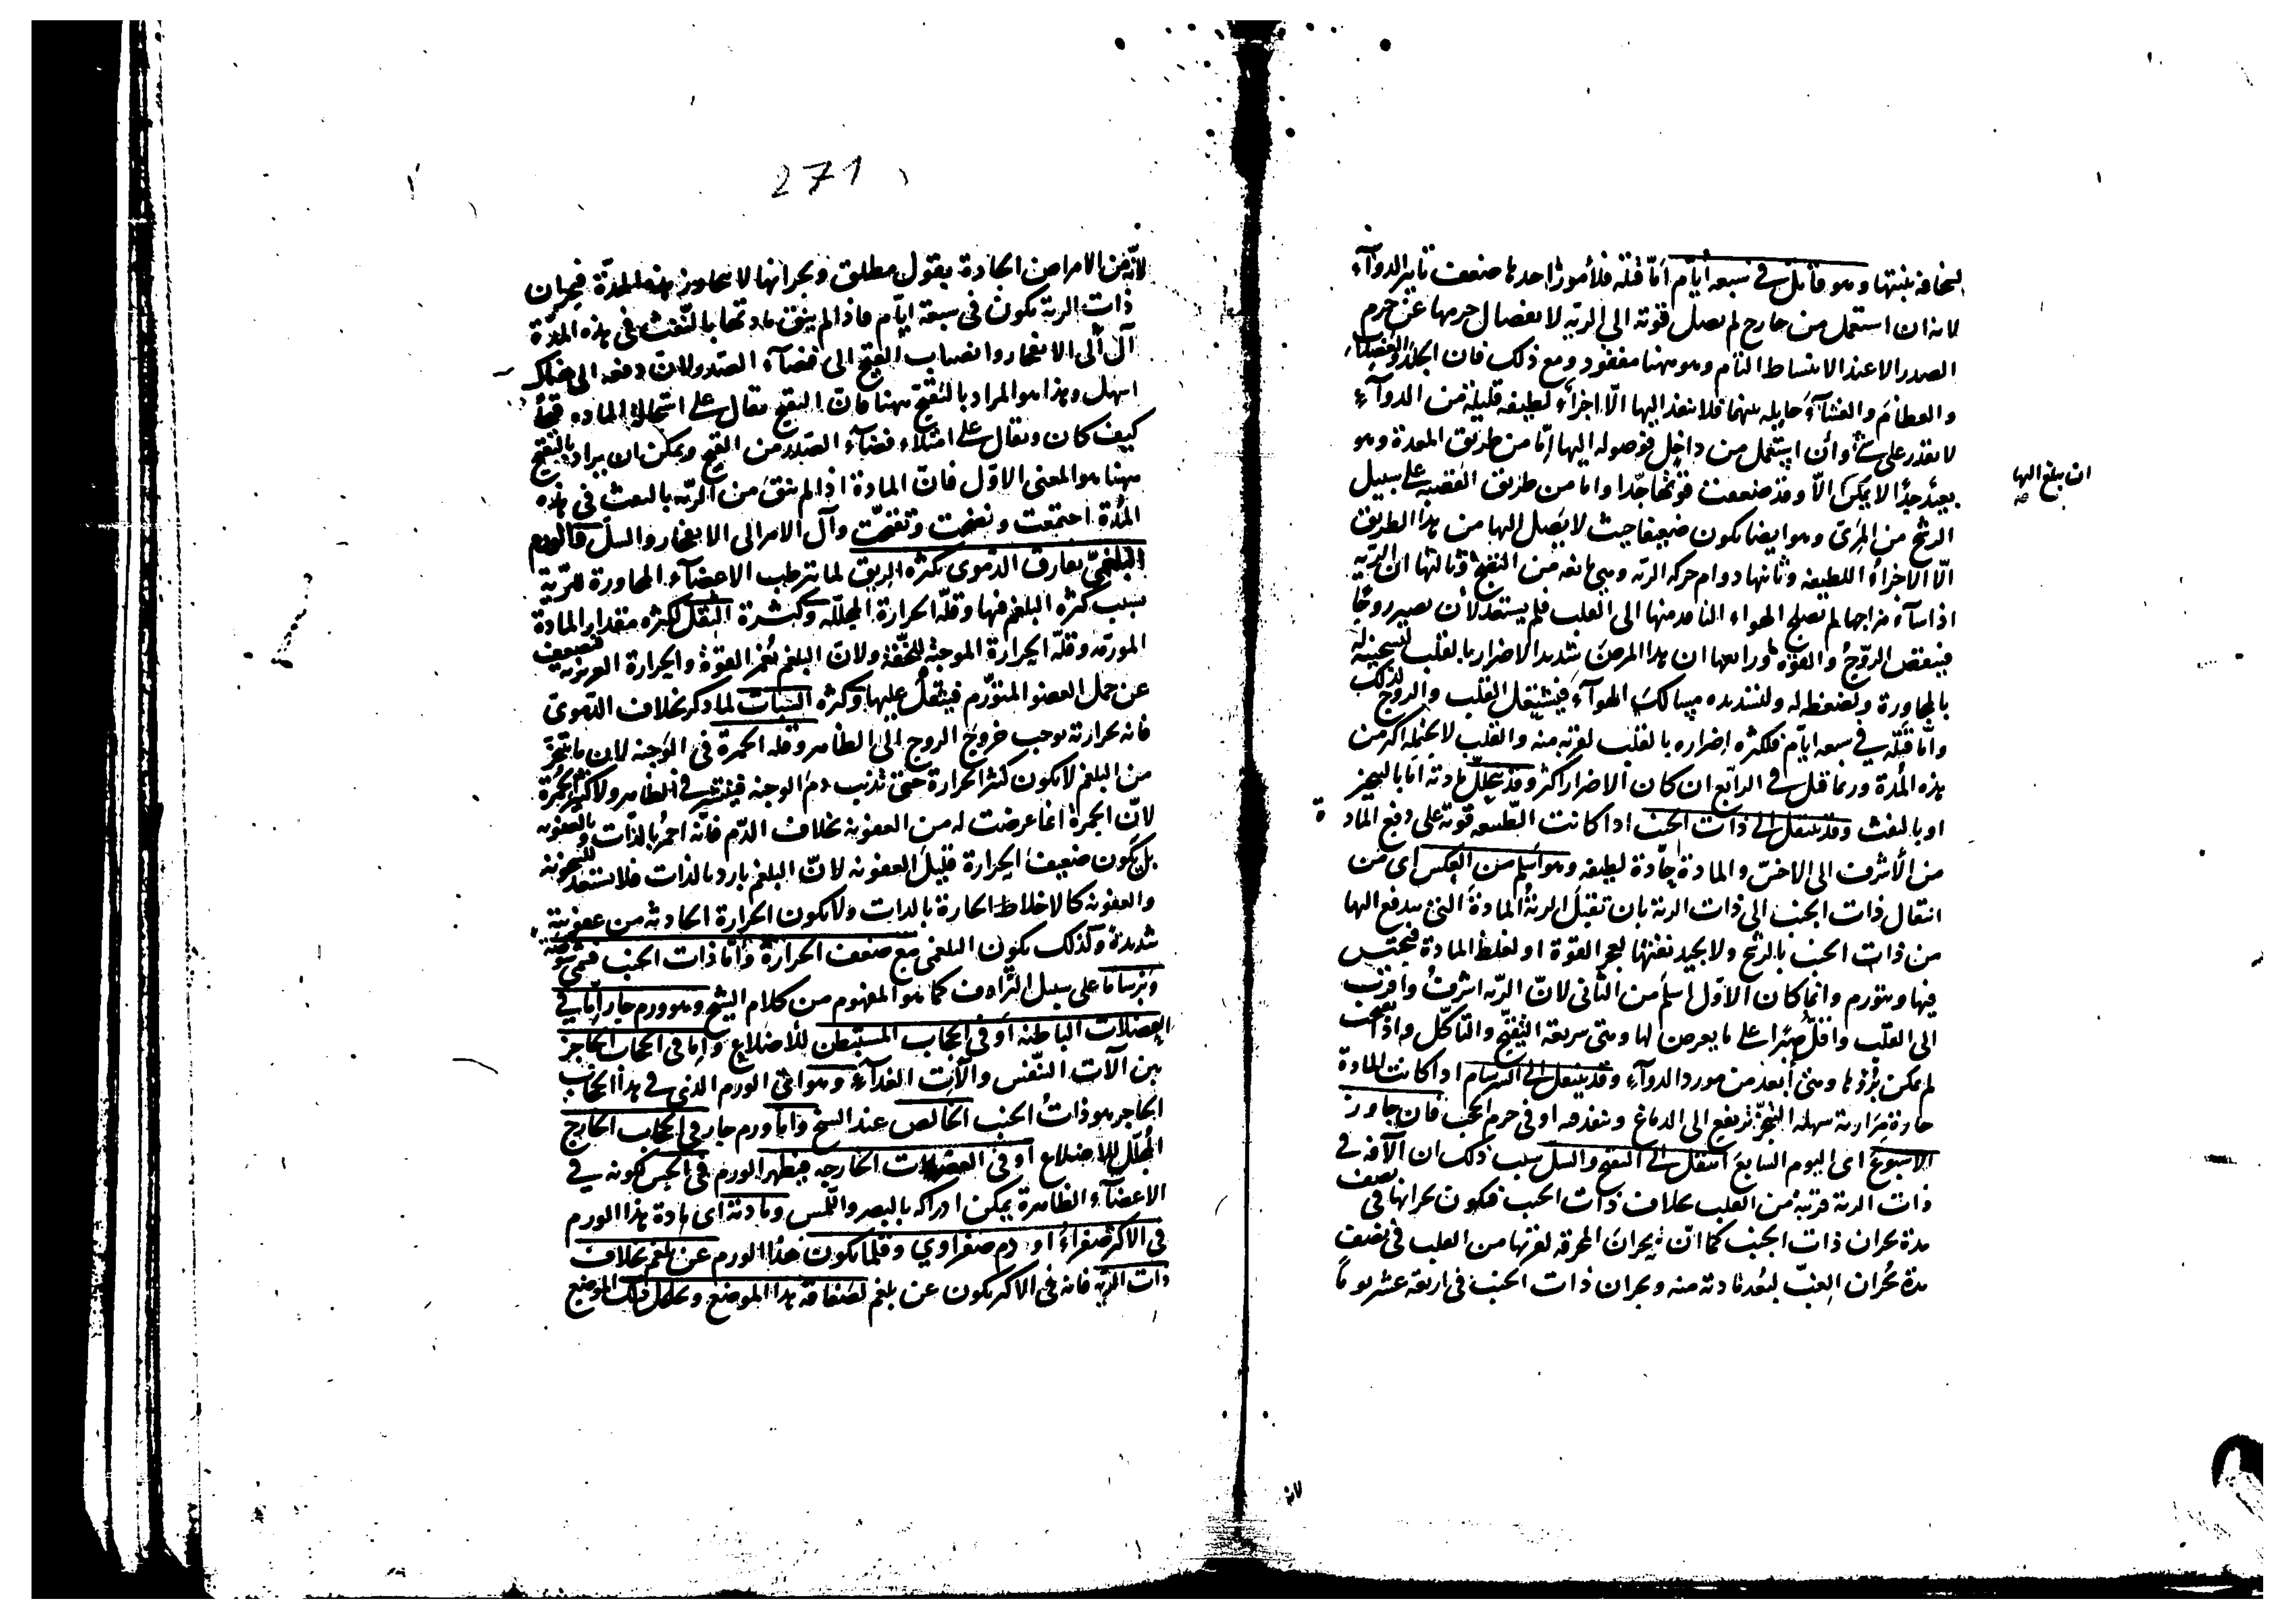 لسخافة بنيتها وهو قاتل في سبعة أيام أما قتله فلأمور احدها ضعف تاثير الدوآء
لانه ان استعمل من خارج لم يصل قوته الى الرئة لانفصال جرمها عن جرم
الصدر الا عند الانبساط التام وهو ههنا مفقود ومع ذلك فان الجلد والعضلات
والعظام والغشآء حايلة بينهما فلا ينفذ اليها الّا اجزآء لطيفة قليلة من الدوآء
لا يقدر على شئ وأن استعمل من داخل فوصوله اليها إمّا من طريق المعدة وهو
بعيد جدّا لا يمكن الّا وقد ضعفت قوتها جدّا واما من طريق القصبة على سبيل
ان يبلغ اليها
الرشح من المرئ وهو ايضا يكون ضعيفا حيث لا يصل اليها من هذا الطريق
الّا الاجزآء اللطيفة وثانيها دوام حركة الرئة وهى مانعة من النضج وثالثها ان الرئة
اذا سآء مزاجها لم يصلح الهواء النافذ منها الى القلب فلم يستعد لأن يصير روحًا
فينقص الروح والقوة ورابعها ان هذا المرض شديد الاضرار بالقلب لتسخينه له
بالمجاورة ولضغطه له ولتسديده مسالك الهوآء فيشتعل القلب والروح لذلك
وأمّا قتله في سبعة ايّام فلكثرة اضراره بالقلب لقربه منه والقلب لا يحتمله اكثر من
هذه المدة وربما قتل في الرابع ان كان الاضرار اكثر وقد يتحلّل مادته امّا بالتبخير
او بالنفث وقد ينتقل الى ذات الجنب اذا كانت الطّبيعة قوية على دفع المادة
من الأشرف الى الاخسّ والمادة حادّة لطيفة وهو اسلم من العكس اى من
انتقال ذات الجنب الى ذات الرئة بان تقبل الرئة المادة التى يندفع اليها
من ذات الجنب بالرشح ولا يجيد نفثها لعجز القوة او لغلظ المادة فيحتبس
فيها ويتورم وانما كان الاوّل اسلم من الثانى لانّ الرئة اشرف واقرب
الى القلب واقلّ صبرًا على ما يعرض لها وهى سريعة التقيّح والتأكّل واذا تقيحت
لم يمكن برؤها وهى أبعد من مورد الدوآء وقد ينتقل الى السرسام اذا كانت المادة
حارة مرارية سهلة التبخّر ترتفع الى الدماغ وينفذ فيه او فى جرم الحجب فان جاوز
الاسبوع اى اليوم السابع انتقل الى التقيح والسل سبب ذلك ان الآفة في
ذات الرئة قريبة من القلب بخلاف ذات الجنب فيكون بحرانها في نصف
مدة بحران ذات الجنب كما انّ بحران المحرقة لقربها من القلب فى نصف
مدة بحران الغبّ لبعد مادته منه وبحران ذات الجنب فى اربعة عشر يوماً
لانه
271
لأنّه من الامراض الحادة بقول مطلق وبحرانها لا يتجاوز هذه المدّة فبحران
ذات الرئة يكون فى سبعة ايّام فاذا لم ينق مادتها بالنّفث فى هذه المدّة
آل ألى الانفجار وانصباب القيح الى فضآء الصدر ولانّ دفعه الى هناك
اسهل وهذا هو المراد بالتقيّح ههنا فانّ التقيح يقال على استحالة المادة قيحًا
كيف كان ويقال على امتلاء فضآء الصّدر من القيح ويمكن ان يراد بالتقيح
ههنا هو المعنى الاوّل فانّ المادة اذا لم تنق من الرئة بالنفث فى هذه
المدّة اجتمعت ونضجت وتقيّحت وآل الامر الى الانفجار والسل فالورم
البلغمىّ يفارق الدّموى بكثرة الريق لما يترطب الاعضآء المجاورة للرّئة
بسبب كثرة البلغم فيها وقلّة الحرارة المحلّلة وكثرة الثقل لكثرة مقدار المادة
المورّمة وقلّة الحرارة الموجبة للخفّة ولانّ البلغم يغمر القوّة والحرارة الغريزية فتضعف
عن حمل العضو المتورّم فيثقل عليها وكثرة السبات لما ذكر بخلاف الدّموىّ
فانه بحرارته يوجب خروج الروح الى الظاهر وقلة الحمرة فى الوجنة لان ما يتبخّر
من البلغم لا يكون كثير الحرارة حتى تذيب دم الوجنة فينتشر فى الظاهر ولا كثير الحمرة
لانّ الحمرة انما عرضت له من العفونة بخلاف الدّم فانّه احمر بالذّات وبالعفونة
بل يكون ضعيف الحرارة قليل العفونة لانّ البلغم بارد بالذات فلا يستعد للسخونة
والعفونة كالاخلاط الحارة بالذات ولا يكون الحرارة الحادثة من عفونته
شديدة وكذلك يكون البلغمى مع ضعف الحرارة وامّا ذات الجنب فتسمّى شوصة
وبرساما على سبيل التّرادف كما هو المفهوم من كلام الشيخ وهو ورم حار إمّا في
العضلات الباطنة أو فى الحجاب المستبطن للأضلاع وإما فى الحجاب الحاجز
بين آلات التنفّس وآلات الغذآء وهو اى الورم الذى فى هذا الحجاب
الحاجز هو ذات الجنب الخالص عند الشيخ وإمّا ورم حار فى الحجاب الخارج
المجلّل للاضلاع أو فى العضلات الخارجة فيظهر الورم فى الحسّ لكونه في
الاعضآء الظاهرة يمكن ادراكه بالبصر واللّمس ومادته اى مادة هذا الورم
فى الاكثر صفراء او دم صفراوي وقلما يكون هذا الورم عن بلغم بخلاف
ذات الرّئة فانه فى الاكثر يكون عن بلغم لصفاقة هذا الموضع وتخلخل ذلك الموضع